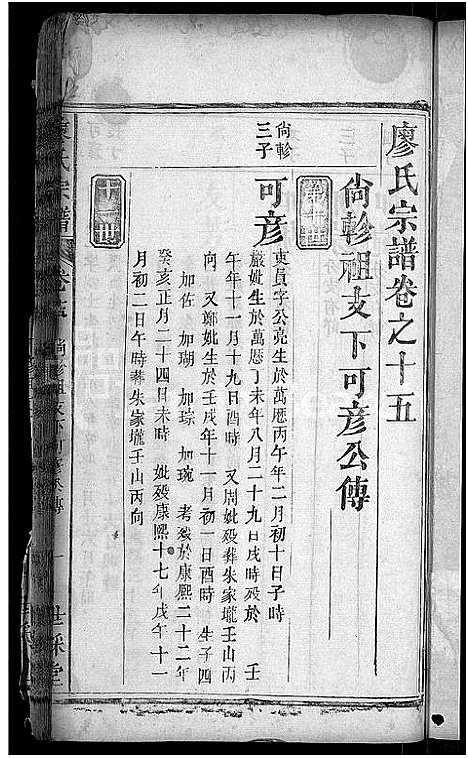 廖氏宗譜卷之十五
尙軫祖支下可彦公傳
第十世
尙軫
三子
可彦
吏員字公亮生於萬厯丙午年二月初十日子時
嚴妣生於萬厯丁未年八月二十九日戌時殁於　壬
午年十一月十九日酉時　又周妣殁葬朱家壠壬山丙
向　又鄭妣生於壬戌年十一月初一日酉時　生子四
加佐　加瑚　加琮　加琬　考殁於康熙二十二年
癸亥正月二十四日未時　妣殁康熙十七年戊午十一
月初二日午時葬朱家壠壬山丙向
十一世
廖氏宗譜
卷十五　尙軫祖支下可彦公傳　一
世綵堂